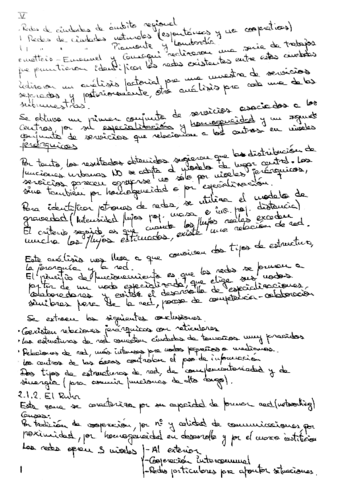 V
Redes de ciudades de ámbito regional
Redes de ciudades naturales (espontáneas y no cooperativas)
Piamonte y Lombardía
Emanuel y realizaron una serie de trabajos
que permitieron identificar las redes existentes entre estos cuentos
realizaron un análisis factorial para una muestra de servicios
separados y posteriormente, otro análisis para cada una de las
submuestras.
Se obtuvo un primer conjunto de servicios asociados a los
centros, por su especialización y homogeneidad y un segundo
conjunto de servicios que relacionan a los centros en niveles
jerárquicos
Por tanto, los resultados obtenidos sugieren que la distribución de
funciones urbanas NO se adapta al modelo de lugar central. Los
servicios parecen agruparse no solo por niveles jerárquicos,
sino también por homogeneidad o por especialización.
Para identificar patrones de redes, se utiliza el modelo de
gravedad (Intensidad flujos prop. masa e inv. prop. distancia)
El criterio seguido es que cuando los flujos reales exceden
mucho los flujos estimados, existe una relación de red.
Este análisis nos lleva a que conviven dos tipos de estructura,
la jerarquía y la red.
El principio de funcionamiento es que las redes se forman a
partir de un nodo especializado, que elige sus nodos
colaboradores y existe el desarrollo de especializaciones,
simetrías para de la red, proceso de competición-colaboración
Se extraen las siguientes conclusiones
· Coexisten relaciones jerárquicas con reticulares
· Las estructuras de red conectan ciudades de tamaños muy parecidos
· Relaciones de red, más intensas por nodos pequeños o medianos.
Los centros de las áreas controlan el paso de información
Dos tipos de estructuras de red, de complementariedad y de
sinergia (para asumir funciones de alto rango).
2.1.2. El Ruhr
Esta zona se caracteriza por su capacidad de formar red (networking)
Causas:
Por tradición de cooperación, por nº y calidad de comunicaciones por
proximidad, por homogeneidad en desarrollo y por el marco
Las redes operan 3 niveles - Al exterior
- Cooperación intercomunal
- Redes particulares para afrontar situaciones.